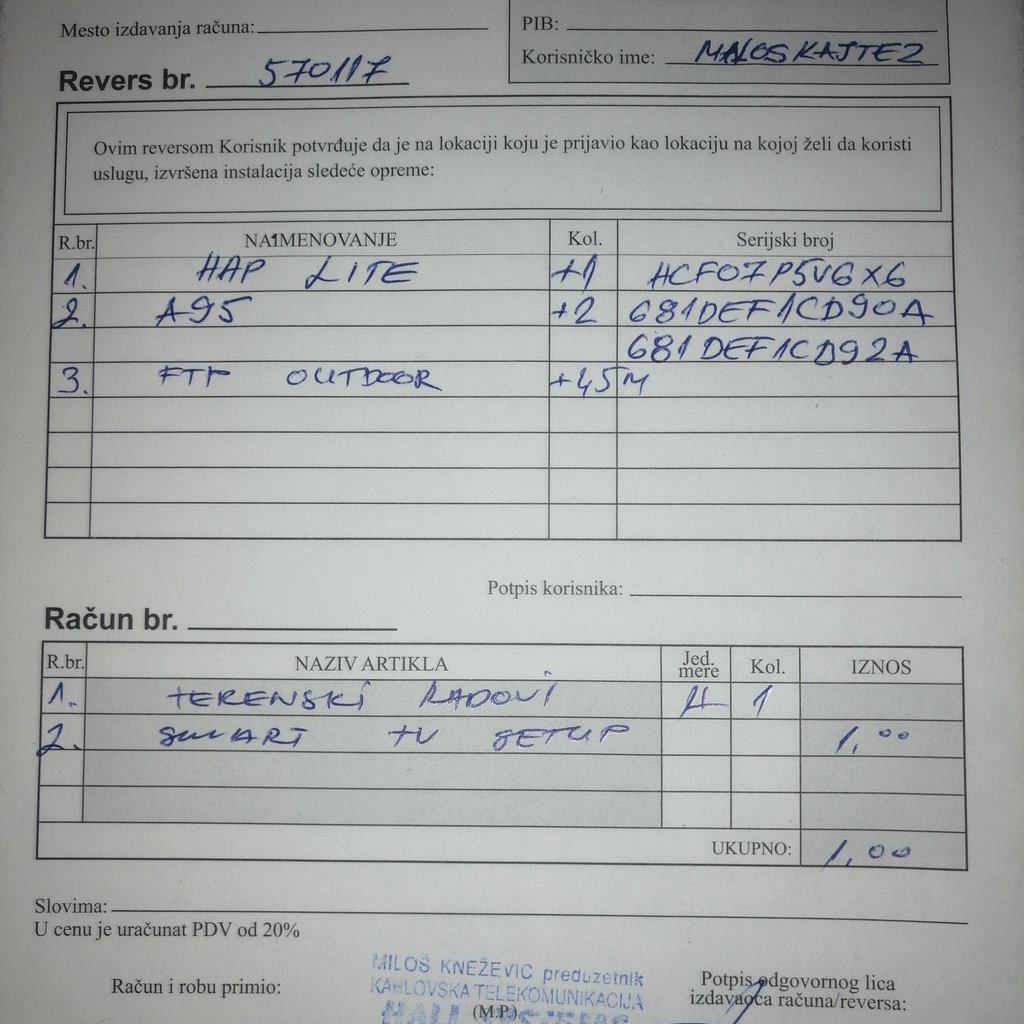 Mesto izdavanja računa:
PIB:
Korisničko ime: MILOSKAJTEZ
Revers br. 570117
Ovim reversom Korisnik potvrđuje da je na lokaciji koju je prijavio kao lokaciju na kojoj želi da koristi
uslugu, izvršena instalacija sledeće opreme:
R.br. NAIMENOVANJE Kol. Serijski broj
1. HAP LITE +1 HCF07P5VGX6
2. A95 +2 681DEF1CD90A
681DEF1CD92A
3. FTP OUTDOOR +45M
Potpis korisnika:
Račun br.
R.br. NAZIV ARTIKLA Jed. mere Kol. IZNOS
1. TERENSKI RADOVI H 1
2. SMART TV SETUP 1,00
UKUPNO: 1,00
Slovima:
U cenu je uračunat PDV od 20%
Račun i robu primio:
MILOŠ KNEŽEVIĆ preduzetnik
KABLOVSKA TELEKOMUNIKACIJA
(M.P.)
Potpis odgovornog lica
izdavaoca računa/reversa: